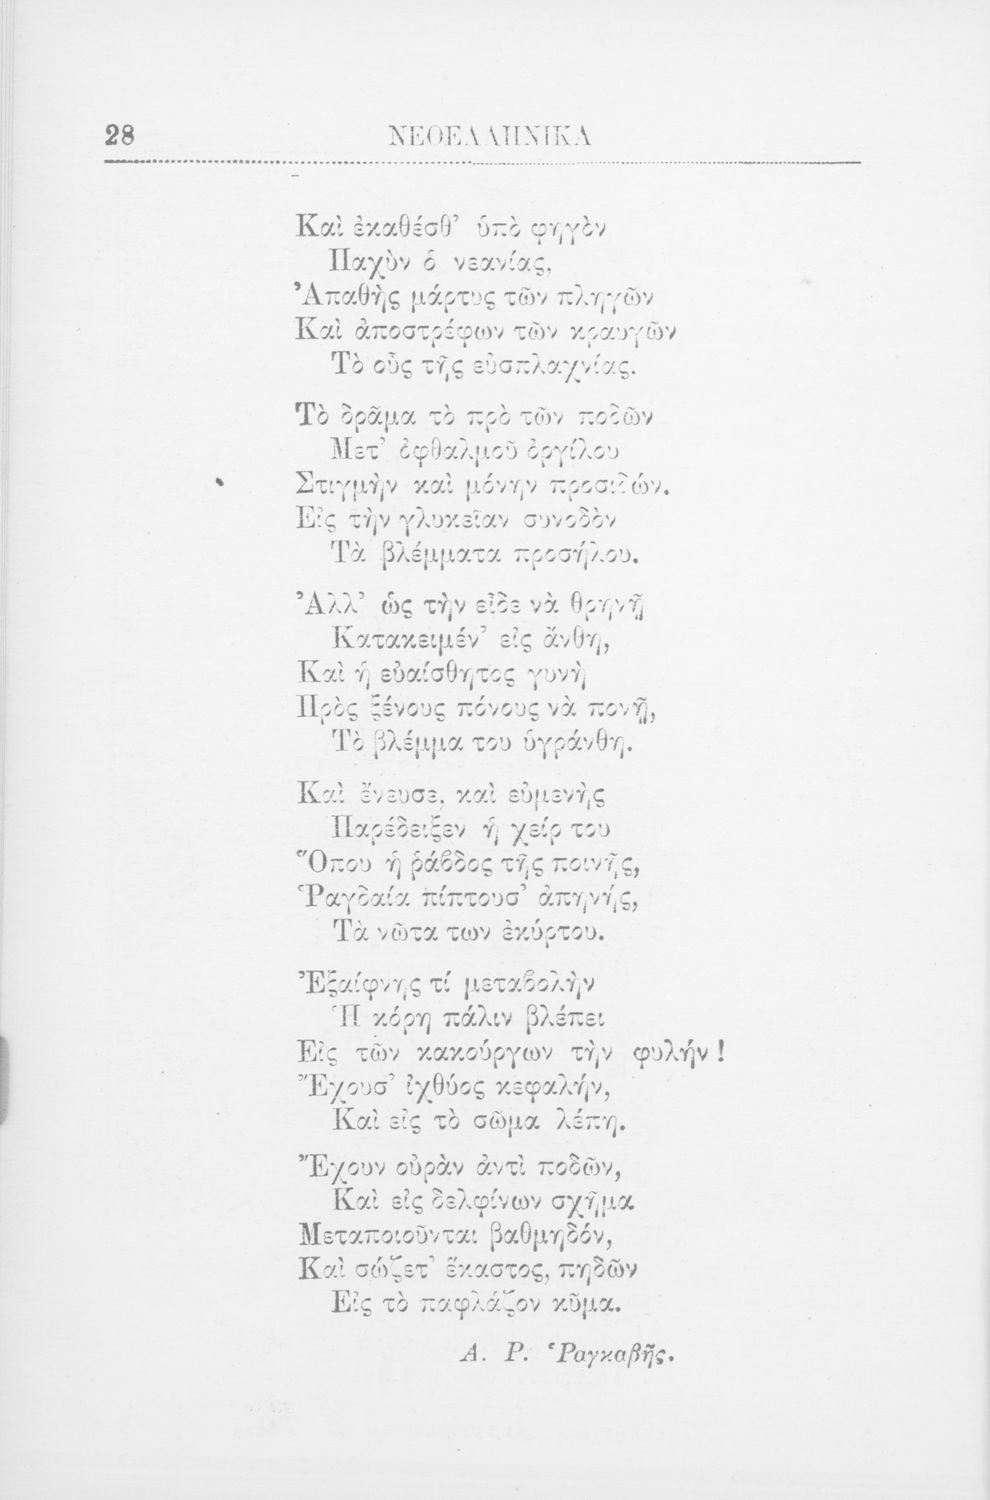 28 ΝΕΟΕΛΛΗΝΙΚΑ
Καὶ ἐκαθέσθ’ ὑπὸ φηγὸν
Παχὺν ὁ νεανίας,
Ἀπαθὴς μάρτυς τῶν πληγῶν
Καὶ ἀποστρέφων τῶν κραυγῶν
Τὸ οὖς τῆς εὐσπλαχνίας.
Τὸ δρᾶμα τὸ πρὸ τῶν ποδῶν
Μετ’ ὀφθαλμοῦ ὀργίλου
Στιγμὴν καὶ μόνην προσιδών,
Εἰς τὴν γλυκεῖαν συνοδὸν
Τὰ βλέμματα προσήλου.
Ἀλλ’ ὡς τὴν εἶδε νὰ θρηνῇ
Κατακειμέν’ εἰς ἄνθη,
Καὶ ἡ εὐαίσθητος γυνὴ
Πρὸς ξένους πόνους νὰ πονῇ,
Τὸ βλέμμα του ὑγράνθη.
Καὶ ἔνευσε, καὶ εὐμενὴς
Παρέδειξεν ἡ χείρ του
Ὅπου ἡ ῥάβδος τῆς ποινῆς,
Ῥαγδαία πίπτουσ’ ἀπηνής,
Τὰ νῶτα των ἐκύρτου.
Ἐξαίφνης τί μεταβολὴν
Ἡ κόρη πάλιν βλέπει
Εἰς τῶν κακούργων τὴν φυλήν!
Ἔχουσ’ ἰχθύος κεφαλήν,
Καὶ εἰς τὸ σῶμα λέπη.
Ἔχουν οὐρὰν ἀντὶ ποδῶν,
Καὶ εἰς δελφίνων σχῆμα
Μεταποιοῦνται βαθμηδόν,
Καὶ σώζετ’ ἕκαστος, πηδῶν
Εἰς τὸ παφλάζον κῦμα.
Α. Ρ. Ῥαγκαβῆς.